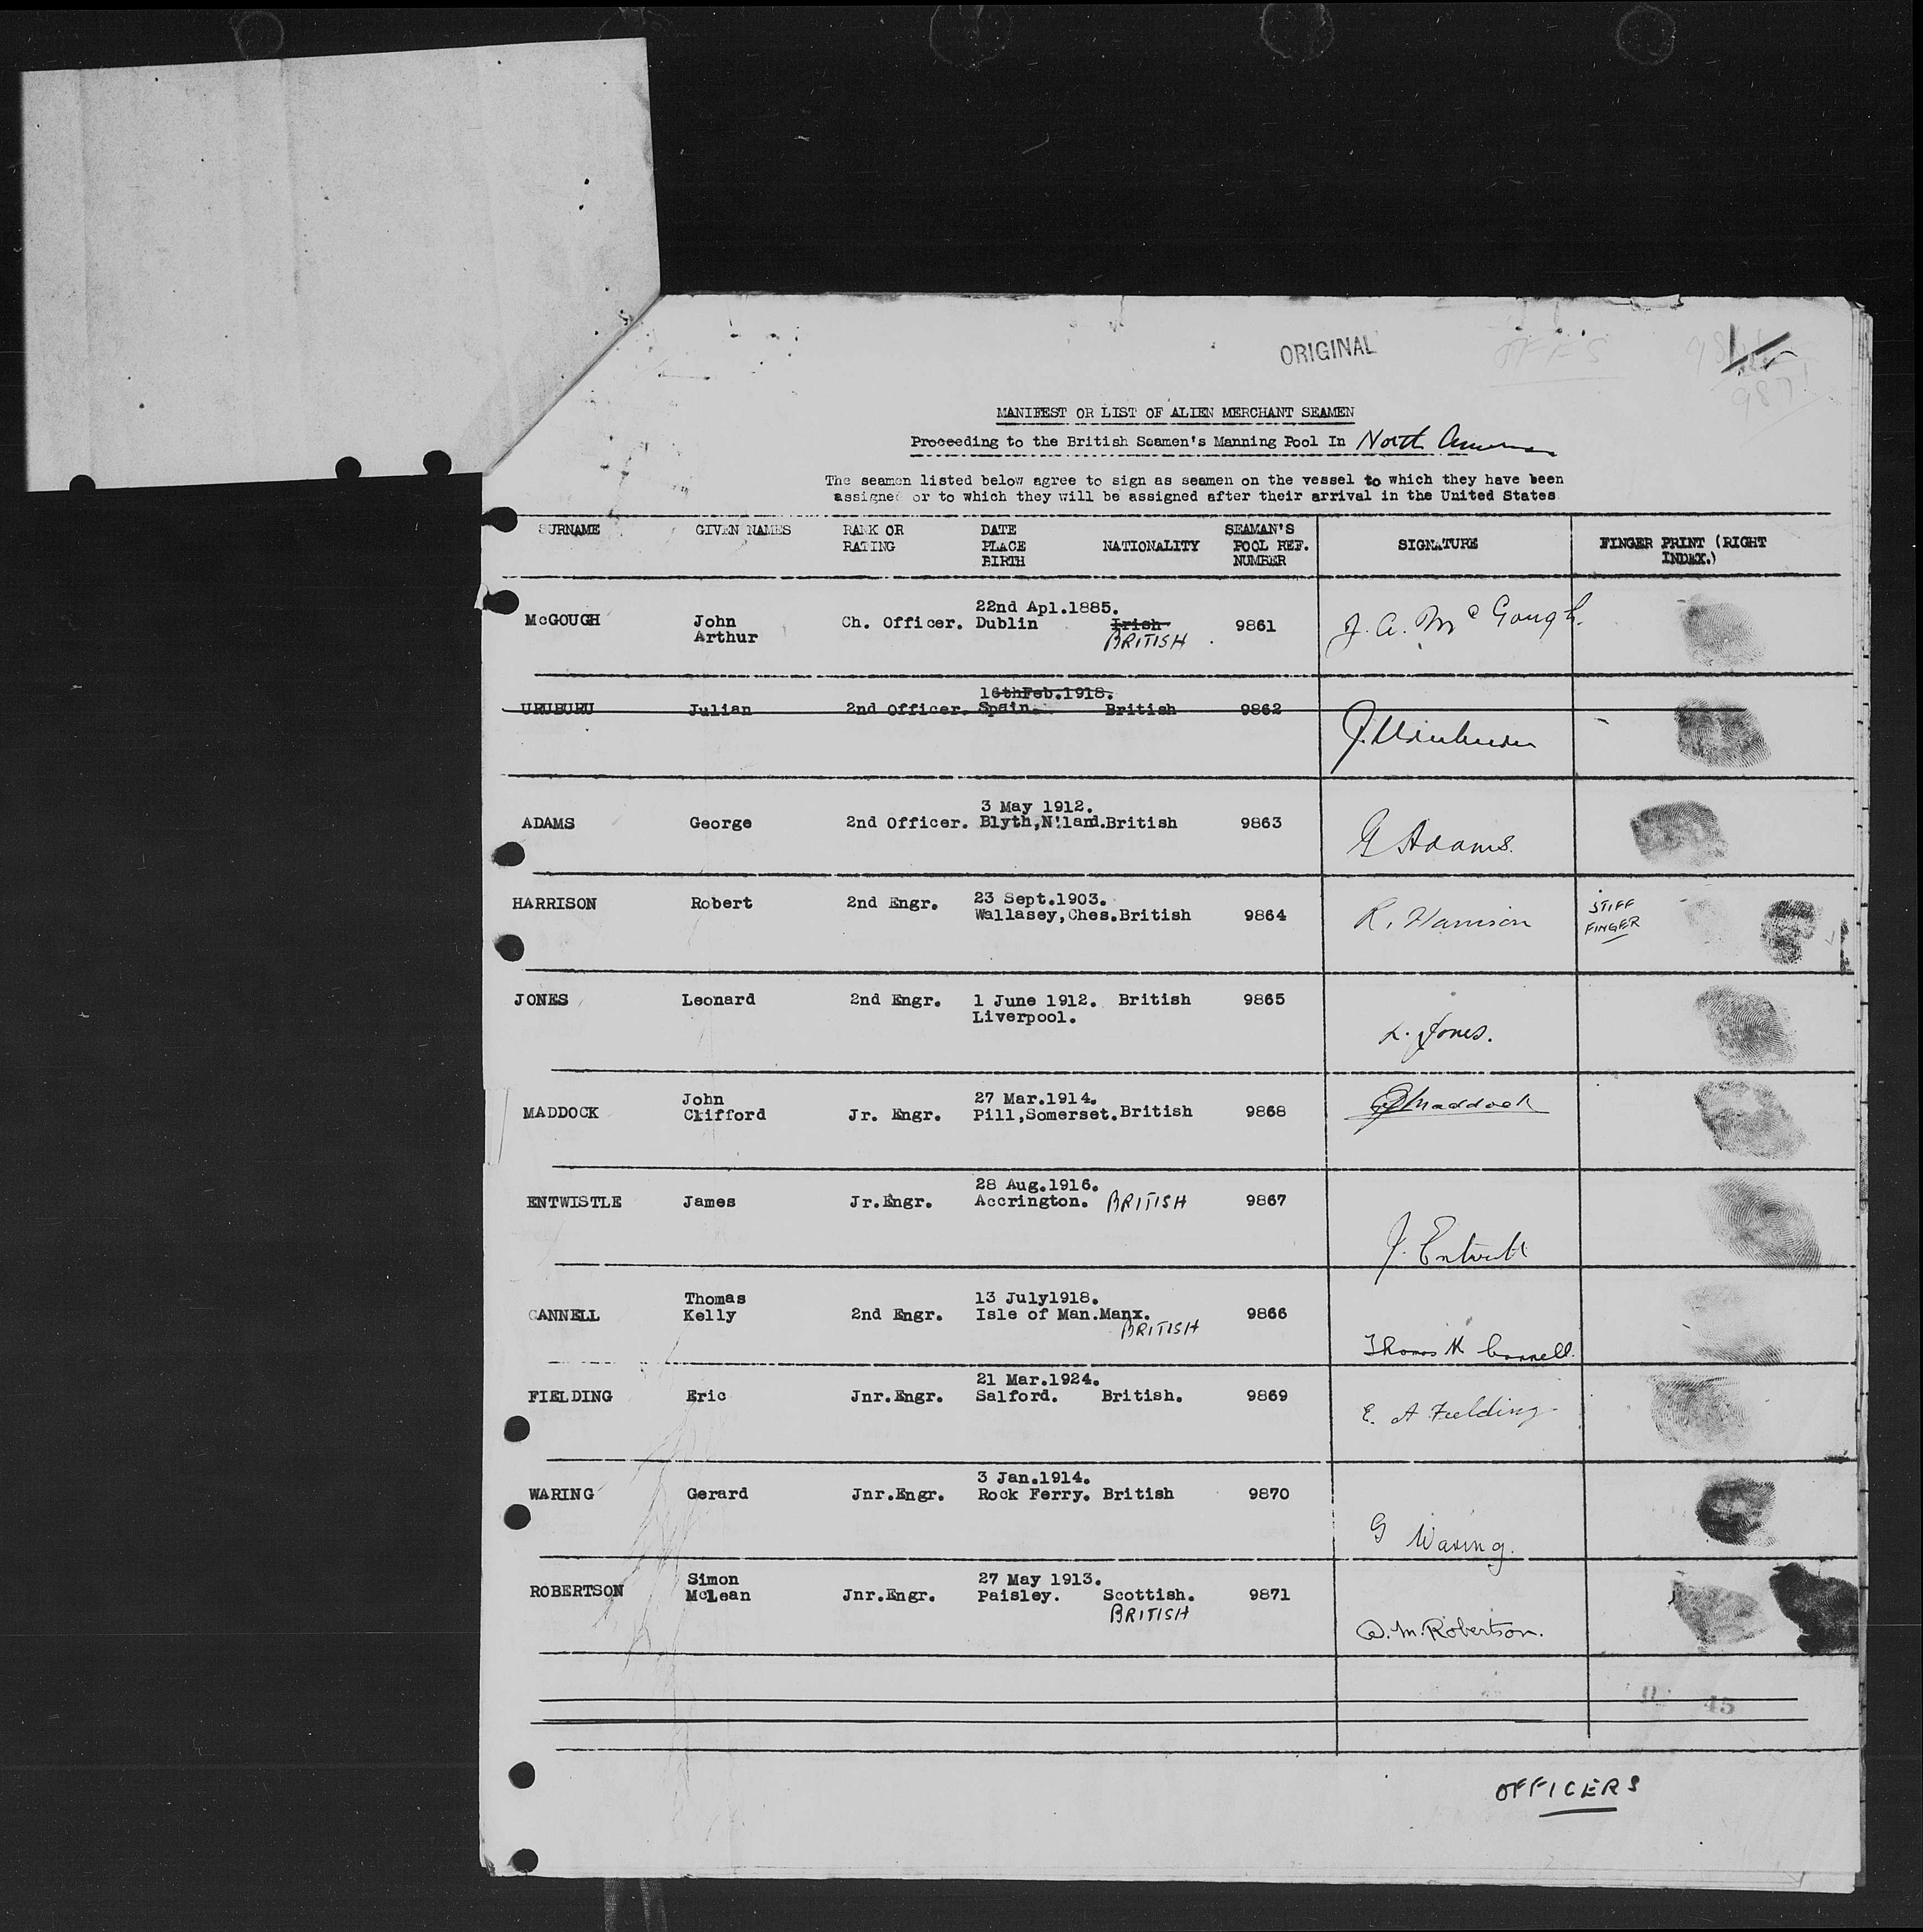 ORIGINAL
OFFS
MANIFEST OR LIST OF ALIEN MERCHANT SEAMEN
Proceeding to the British Seamen's Manning Pool In North
The seamen listed below agree to sign as seamen on the vessel to which they have been
assigned or to which they will be assigned after their arrival in the United States
SURNAME GIVEN NAMES RANK OR RATING DATE PLACE BIRTH NATIONALITY SEAMAN'S POOL REF. NUMBER SIGNATURE FINGER PRINT (RIGHT INDEX.)
22nd Apl.1885.
McGOUGH John Ch. Officer. Dublin Irish 9861 J. A. McGough.
Arthur BRITISH
16thFeb.1918.
URUBURU Julian 2nd Officer. Spain. British 9862
3 May 1912.
ADAMS George 2nd Officer. Blyth,N'land.British 9863 G Adams.
HARRISON Robert 2nd Engr. 23 Sept.1903. STIFF
Wallasey,Ches.British 9864 R. Harrison FINGER
JONES Leonard 2nd Engr. 1 June 1912. British 9865
Liverpool. L. Jones.
John 27 Mar.1914.
MADDOCK Clifford Jr. Engr. Pill,Somerset.British 9868 Maddock
28 Aug.1916.
ENTWISTLE James Jr.Engr. Accrington. BRITISH 9867
Thomas 13 July1918.
CANNELL Kelly 2nd Engr. Isle of Man.Manx. 9866
BRITISH
Thomas K Cannell.
21 Mar.1924.
FIELDING Eric Jnr.Engr. Salford. British. 9869 E. A Fielding
3 Jan.1914.
WARING Gerard Jnr.Engr. Rock Ferry. British 9870
G Waring.
Simon 27 May 1913.
ROBERTSON McLean Jnr.Engr. Paisley. Scottish. 9871
BRITISH
S. M. Robertson.
45
OFFICERS